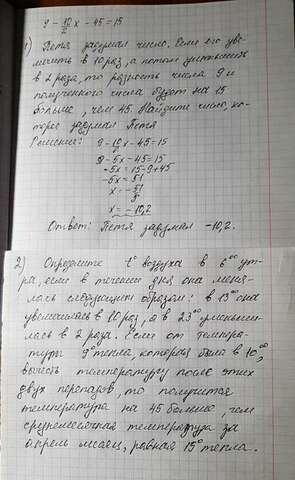 9 - 10/2 x - 45 = 15
1) Петя задумал число. Если его уве-
личить в 10 раз, а потом уменьшить
в 2 раза, то разность числа 9 и
полученного числа будет на 15
больше, чем 45. Найдите число, ко-
торое задумал Петя
Решение: 9 - 10/2 x - 45 = 15
9 - 5x - 45 = 15
-5x = 15 - 9 + 45
-5x = 51
x = - 51/5
x = - 10,2
Ответ: Петя задумал -10,2.
2) Определите t° воздуха в 6⁰⁰ ут-
ра, если в течении дня она меня-
лась следующим образом: в 13⁰⁰ она
увеличилась в 10 раз, а в 23⁰⁰ уменьши-
лась в 2 раза. Если от темпера-
туры 9° тепла, которая была в 10⁰⁰,
вычесть температуру после этих
двух перепадов, то получится
температура на 45 больше, чем
среднемесячная температура за
апрель месяц, равная 15° тепла.